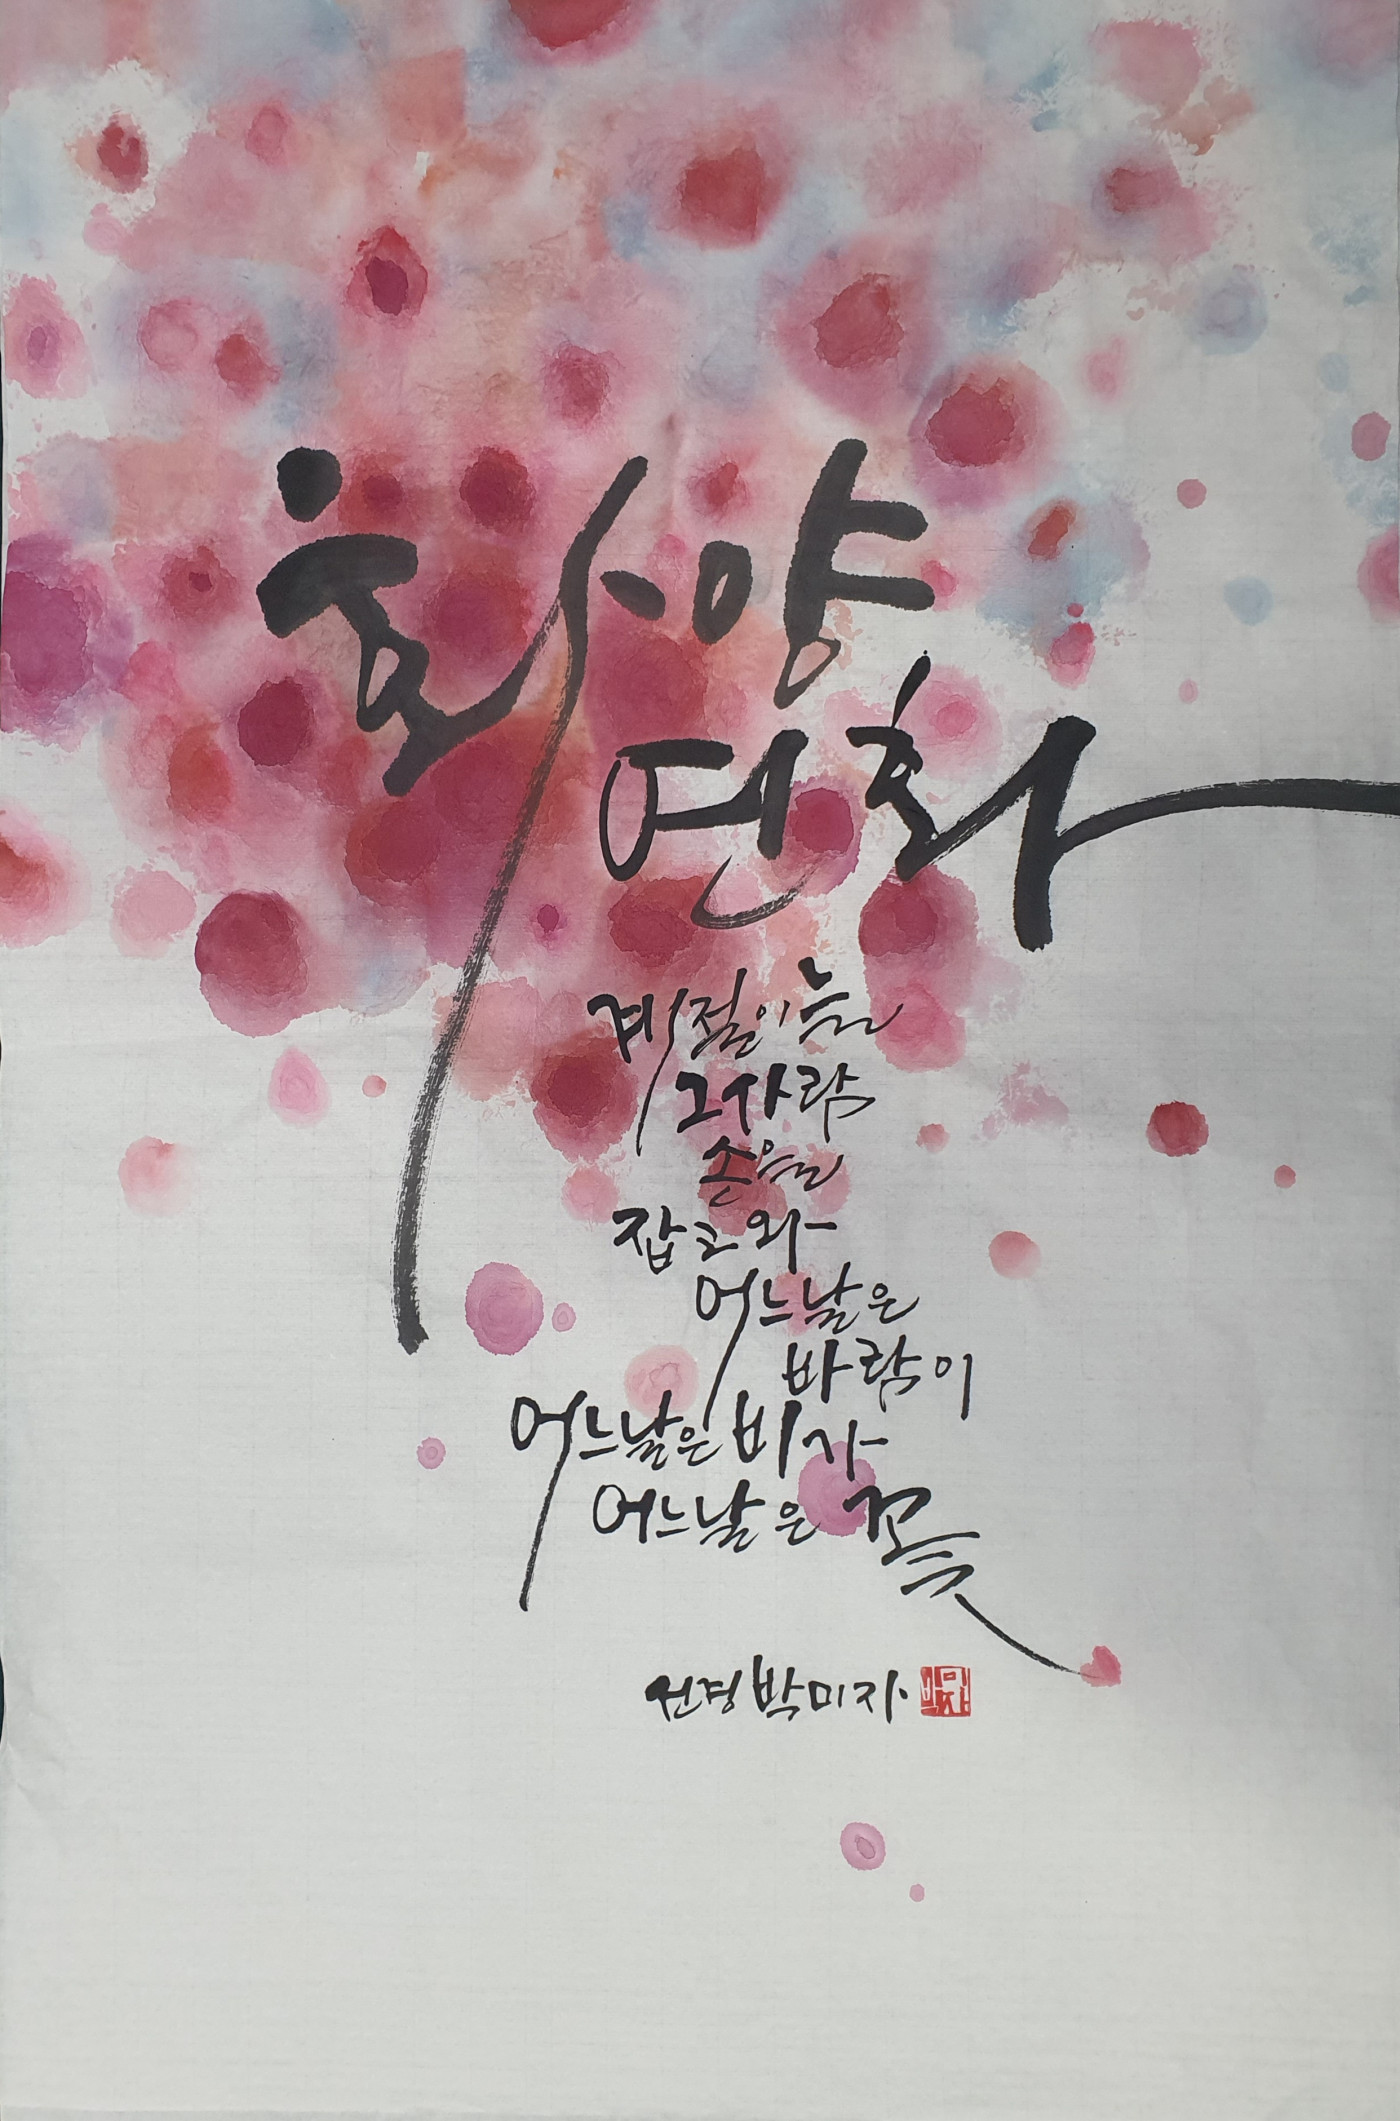 화양
연화
계절이 늘
그 사람
손을
잡고 와
어느 날은
바람이
어느 날은 비가
어느 날은 꽃
선경 박미자